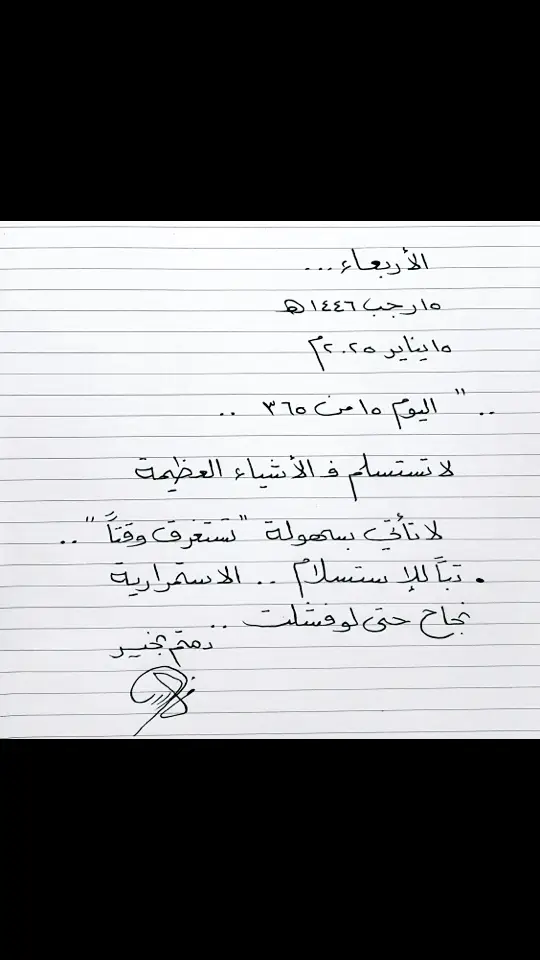 الأربعاء...
١٥ رجب ١٤٤٦ هـ
١٥ يناير ٢٠٢٥ م
.. " اليوم ١٥ من ٣٦٥ ..
لا تستسلم فـ الأشياء العظيمة
لا تأتي بسهولة "تستغرق وقتاً" ..
• تباً للإستسلام .. الاستمرارية
نجاح حتى لو فشلت ..
دمتم بخير